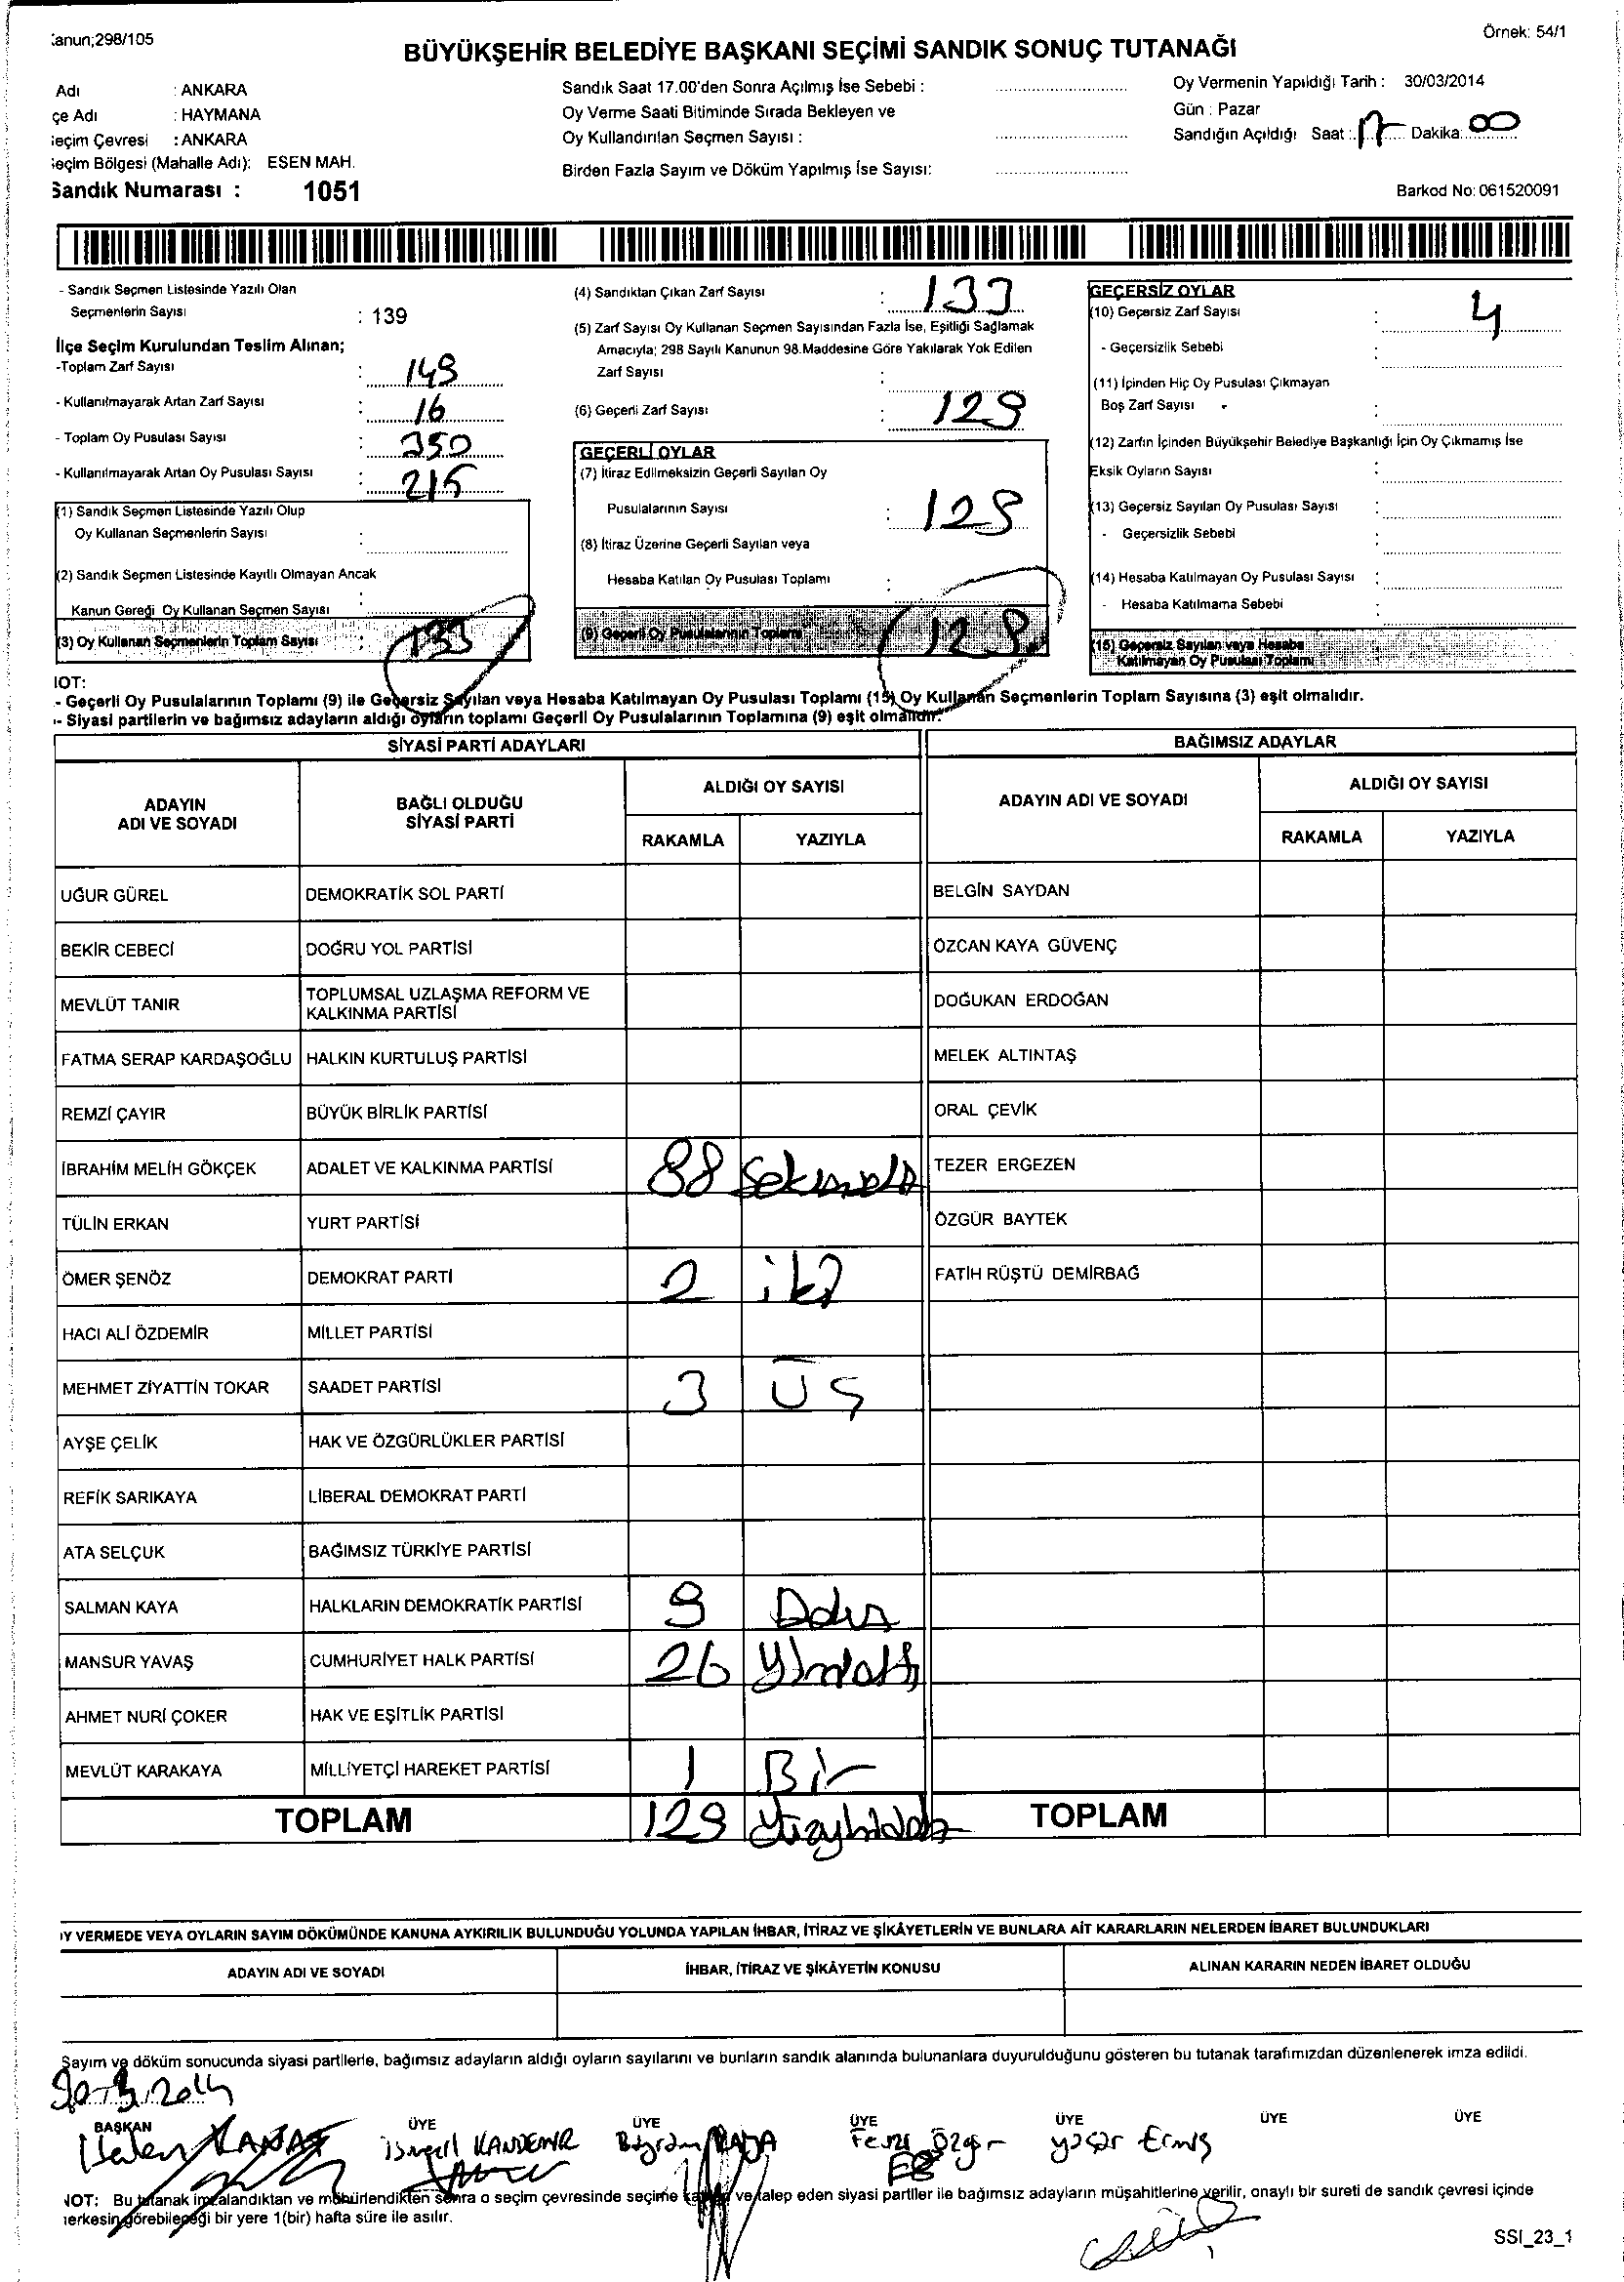 Kanun;298/105
Örnek: 54/1
BÜYÜKŞEHİR BELEDİYE BAŞKANI SEÇİMİ SANDIK SONUÇ TUTANAĞI
Adı : ANKARA
çe Adı : HAYMANA
eçim Çevresi : ANKARA
eçim Bölgesi (Mahalle Adı): ESEN MAH.
Sandık Numarası : 1051
Sandık Saat 17.00'den Sonra Açılmış İse Sebebi :
Oy Verme Saati Bitiminde Sırada Bekleyen ve
Oy Kullandırılan Seçmen Sayısı :
Birden Fazla Sayım ve Döküm Yapılmış İse Sayısı:
Oy Vermenin Yapıldığı Tarih : 30/03/2014
Gün : Pazar
Sandığın Açıldığı Saat : 17 Dakika: 00
Barkod No: 061520091
- Sandık Seçmen Listesinde Yazılı Olan
Seçmenlerin Sayısı : 139
İlçe Seçim Kurulundan Teslim Alınan;
-Toplam Zarf Sayısı : 149
- Kullanılmayarak Artan Zarf Sayısı : 16
- Toplam Oy Pusulası Sayısı : 350
- Kullanılmayarak Artan Oy Pusulası Sayısı : 215
(1) Sandık Seçmen Listesinde Yazılı Olup
Oy Kullanan Seçmenlerin Sayısı :
(2) Sandık Seçmen Listesinde Kayıtlı Olmayan Ancak
Kanun Gereği Oy Kullanan Seçmen Sayısı :
(3) Oy Kullanan Seçmenlerin Toplam Sayısı : 133
(4) Sandıktan Çıkan Zarf Sayısı : 133
(5) Zarf Sayısı Oy Kullanan Seçmen Sayısından Fazla İse, Eşitliği Sağlamak
Amacıyla; 298 Sayılı Kanunun 98.Maddesine Göre Yakılarak Yok Edilen
Zarf Sayısı :
(6) Geçerli Zarf Sayısı : 129
GEÇERLİ OYLAR
(7) İtiraz Edilmeksizin Geçerli Sayılan Oy
Pusulalarının Sayısı : 129
(8) İtiraz Üzerine Geçerli Sayılan veya
Hesaba Katılan Oy Pusulası Toplamı :
(9) Geçerli Oy Pusulalarının Toplamı : 129
GEÇERSİZ OYLAR
(10) Geçersiz Zarf Sayısı : 4
- Geçersizlik Sebebi :
(11) İçinden Hiç Oy Pusulası Çıkmayan
Boş Zarf Sayısı :
(12) Zarfın İçinden Büyükşehir Belediye Başkanlığı İçin Oy Çıkmamış İse
Eksik Oyların Sayısı :
(13) Geçersiz Sayılan Oy Pusulası Sayısı :
- Geçersizlik Sebebi :
(14) Hesaba Katılmayan Oy Pusulası Sayısı :
- Hesaba Katılmama Sebebi :
(15) Geçersiz Sayılan veya Hesaba
Katılmayan Oy Pusulası Toplamı
NOT:
- Geçerli Oy Pusulalarının Toplamı (9) ile Geçersiz Sayılan veya Hesaba Katılmayan Oy Pusulası Toplamı (15) Oy Kullanan Seçmenlerin Toplam Sayısına (3) eşit olmalıdır.
- Siyasi partilerin ve bağımsız adayların aldığı oyların toplamı Geçerli Oy Pusulalarının Toplamına (9) eşit olmalıdır.
SİYASİ PARTİ ADAYLARI BAĞIMSIZ ADAYLAR
ADAYIN ADI VE SOYADI
BAĞLI OLDUĞU SİYASİ PARTİ
ALDIĞI OY SAYISI
RAKAMLA YAZIYLA
ADAYIN ADI VE SOYADI
ALDIĞI OY SAYISI
RAKAMLA YAZIYLA
UĞUR GÜREL DEMOKRATİK SOL PARTİ BELGİN SAYDAN
BEKİR CEBECİ DOĞRU YOL PARTİSİ ÖZCAN KAYA GÜVENÇ
MEVLÜT TANIR TOPLUMSAL UZLAŞMA REFORM VE KALKINMA PARTİSİ DOĞUKAN ERDOĞAN
FATMA SERAP KARDAŞOĞLU HALKIN KURTULUŞ PARTİSİ MELEK ALTINTAŞ
REMZİ ÇAYIR BÜYÜK BİRLİK PARTİSİ ORAL ÇEVİK
İBRAHİM MELİH GÖKÇEK ADALET VE KALKINMA PARTİSİ 88 TEZER ERGEZEN
TÜLİN ERKAN YURT PARTİSİ ÖZGÜR BAYTEK
ÖMER ŞENÖZ DEMOKRAT PARTİ 2 iki FATİH RÜŞTÜ DEMİRBAĞ
HACI ALİ ÖZDEMİR MİLLET PARTİSİ
MEHMET ZİYATTİN TOKAR SAADET PARTİSİ 3 ÜÇ
AYŞE ÇELİK HAK VE ÖZGÜRLÜKLER PARTİSİ
REFİK SARIKAYA LİBERAL DEMOKRAT PARTİ
ATA SELÇUK BAĞIMSIZ TÜRKİYE PARTİSİ
SALMAN KAYA HALKLARIN DEMOKRATİK PARTİSİ 9
MANSUR YAVAŞ CUMHURİYET HALK PARTİSİ 26
AHMET NURİ ÇOKER HAK VE EŞİTLİK PARTİSİ
MEVLÜT KARAKAYA MİLLİYETÇİ HAREKET PARTİSİ 1 Bir
TOPLAM 129 TOPLAM
OY VERMEDE VEYA OYLARIN SAYIM DÖKÜMÜNDE KANUNA AYKIRILIK BULUNDUĞU YOLUNDA YAPILAN İHBAR, İTİRAZ VE ŞİKÂYETLERİN VE BUNLARA AİT KARARLARIN NELERDEN İBARET BULUNDUKLARI
ADAYIN ADI VE SOYADI İHBAR, İTİRAZ VE ŞİKÂYETİN KONUSU ALINAN KARARIN NEDEN İBARET OLDUĞU
Sayım ve döküm sonucunda siyasi partilerle, bağımsız adayların aldığı oyların sayılarını ve bunların sandık alanında bulunanlara duyurulduğunu gösteren bu tutanak tarafımızdan düzenlenerek imza edildi.
30-3-2014
BAŞKAN ÜYE ÜYE ÜYE ÜYE ÜYE ÜYE
ismail KANDEMİR Bayram Fevzi Özgür yaşar Ermiş
NOT: Bu tutanak imzalandıktan ve mühürlendikten sonra o seçim çevresinde seçime katılan ve talep eden siyasi partiler ile bağımsız adayların müşahitlerine verilir, onaylı bir sureti de sandık çevresi içinde
herkesin görebileceği bir yere 1(bir) hafta süre ile asılır.
SSI_23_1